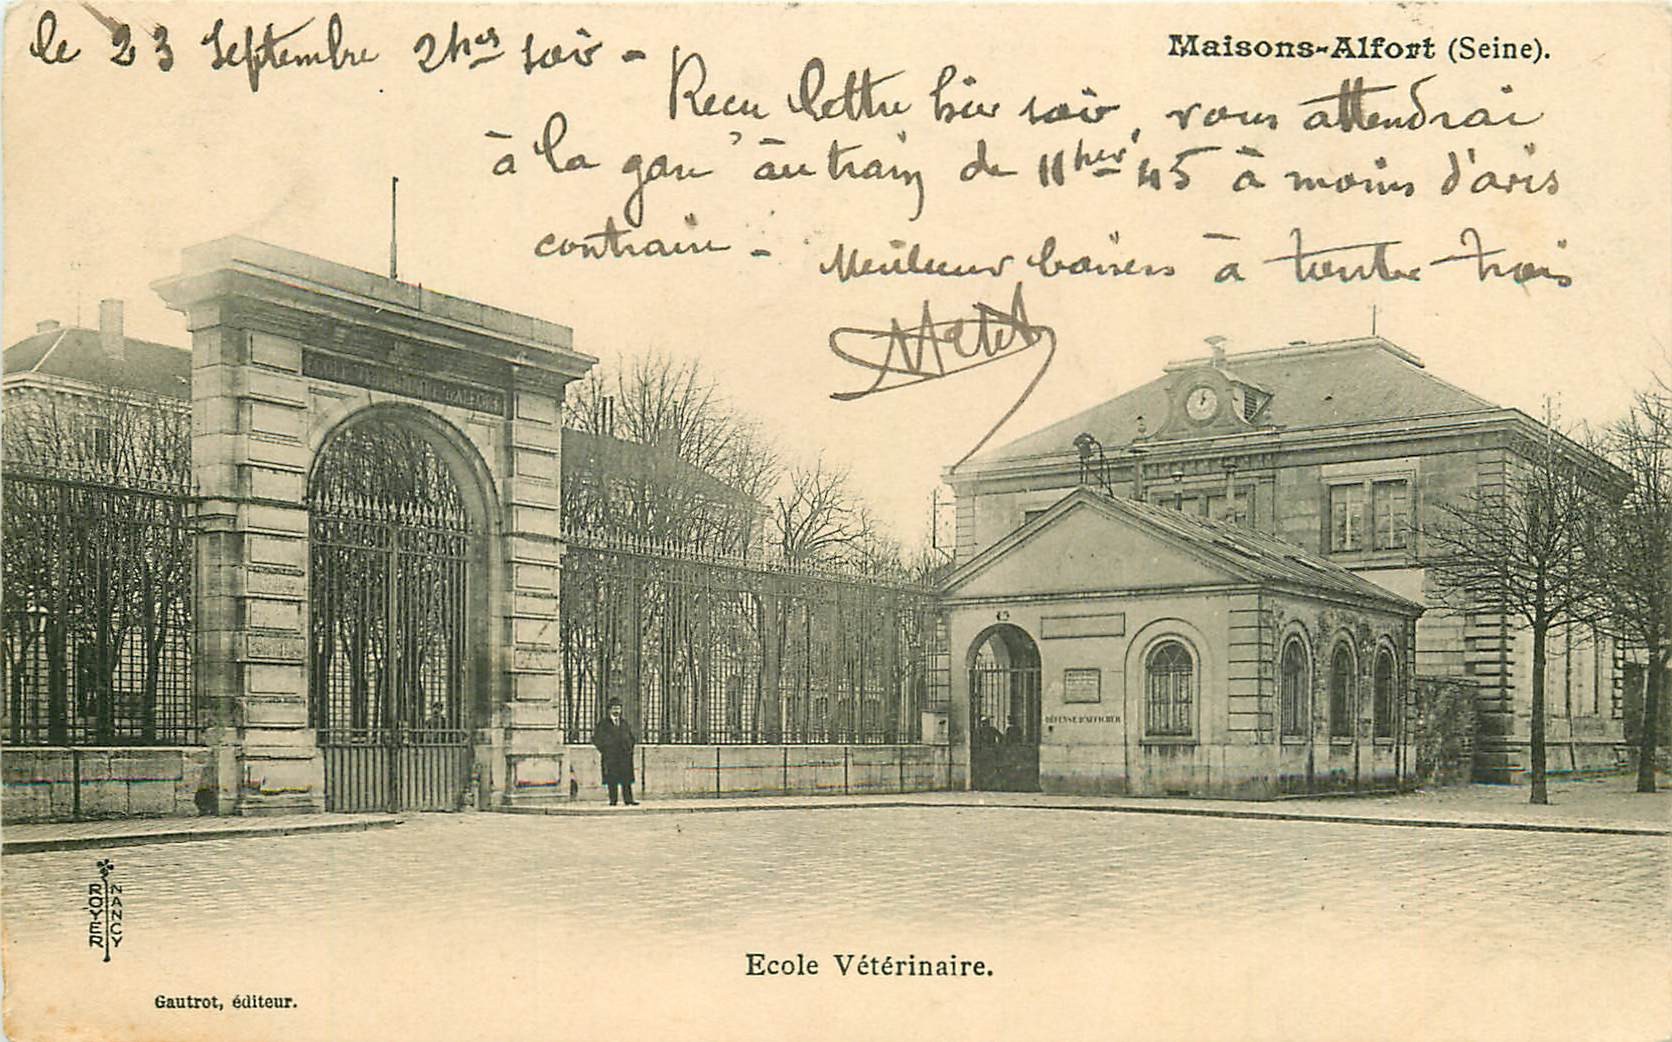 le 23 Septembre 2hres soir -
Maisons-Alfort (Seine).
Recu lettre hier soir, vous attendrai
à la gare au train de 11hres 45 à moins d'avis
contraire - Meilleurs baisers à toutes trois
ECOLE D'ALFORT
DÉFENSE D'AFFICHER
ROYER NANCY
Ecole Vétérinaire.
Gautrot, éditeur.